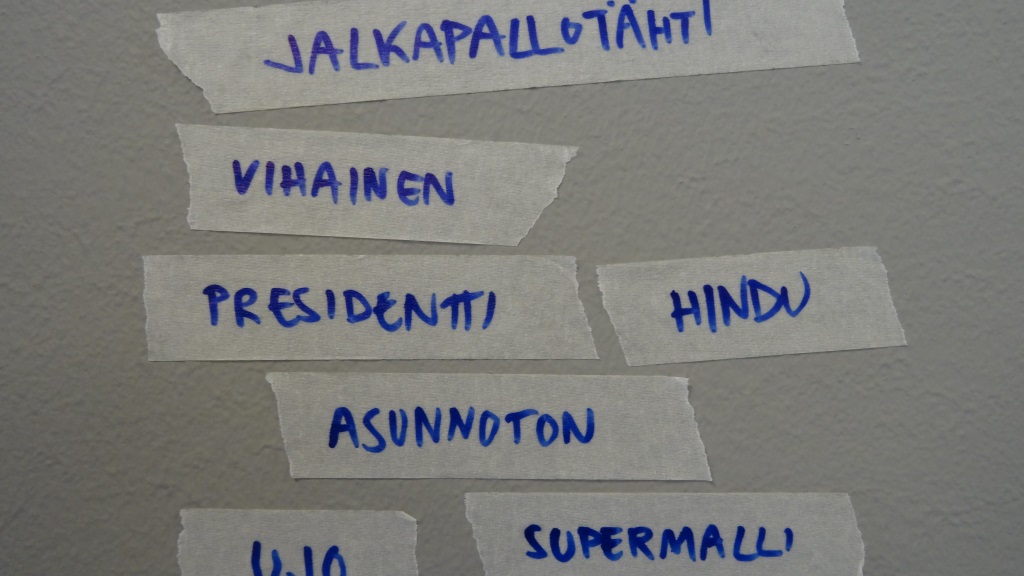 JALKAPALLOTÄHTI
VIHAINEN
PRESIDENTTI HINDU
ASUNNOTON
UJO SUPERMALLI